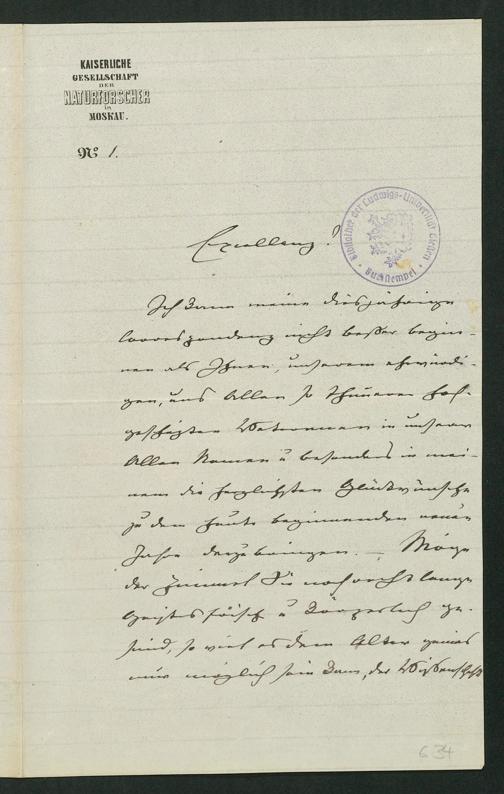 KAISERLICHE
GESELLSCHAFT
DER
NATURFORSCHER
in
MOSKAU.
No 1.
Bibliothek der Ludwigs-Universität Giessen
Buchstempel
Excellenz!
Ich kann meine diesjährige
Correspondenz nicht beßer begin-
nen als Ihnen, unserem ehrwürdi-
gen, uns Allen so theueren hoch-
geschäzten Veteranen in unserer
Allen Namen u besonders in mei-
nem die herzlichsten Glückwünsche
zu dem heute beginnenden neuen
Jahre darzubringen. – Möge
der Himmel Sie noch recht lange
geistesfrisch u körperlich ge-
sund, so viel es dem Alter
nur möglich sein kann, der Wißenschaft
634